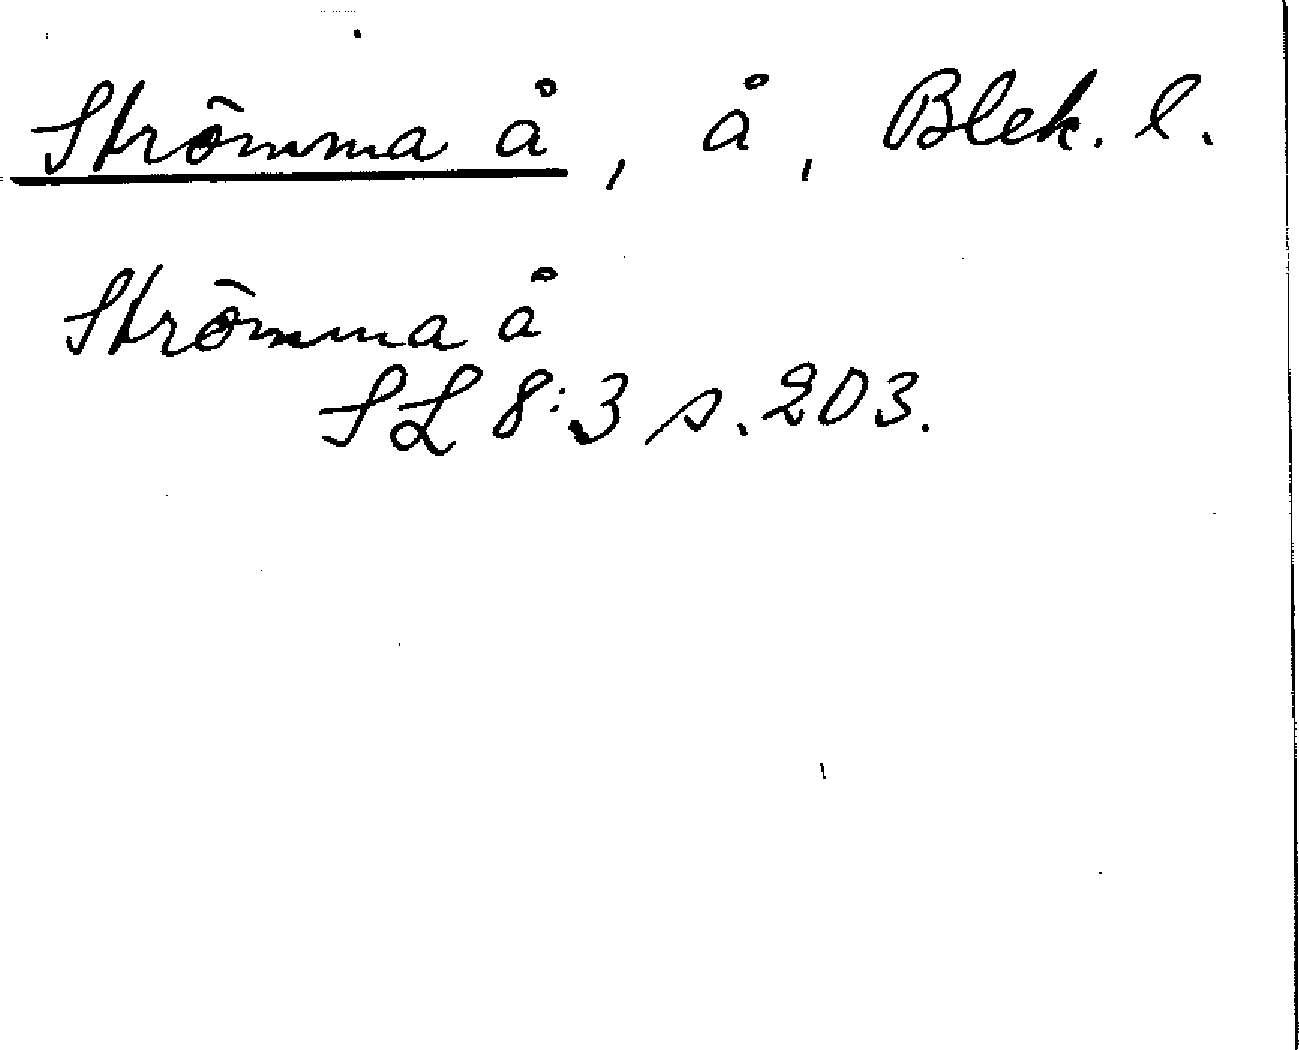 Strömma å, å, Blek. l.
Strömma å
SL 8:3 s. 203.